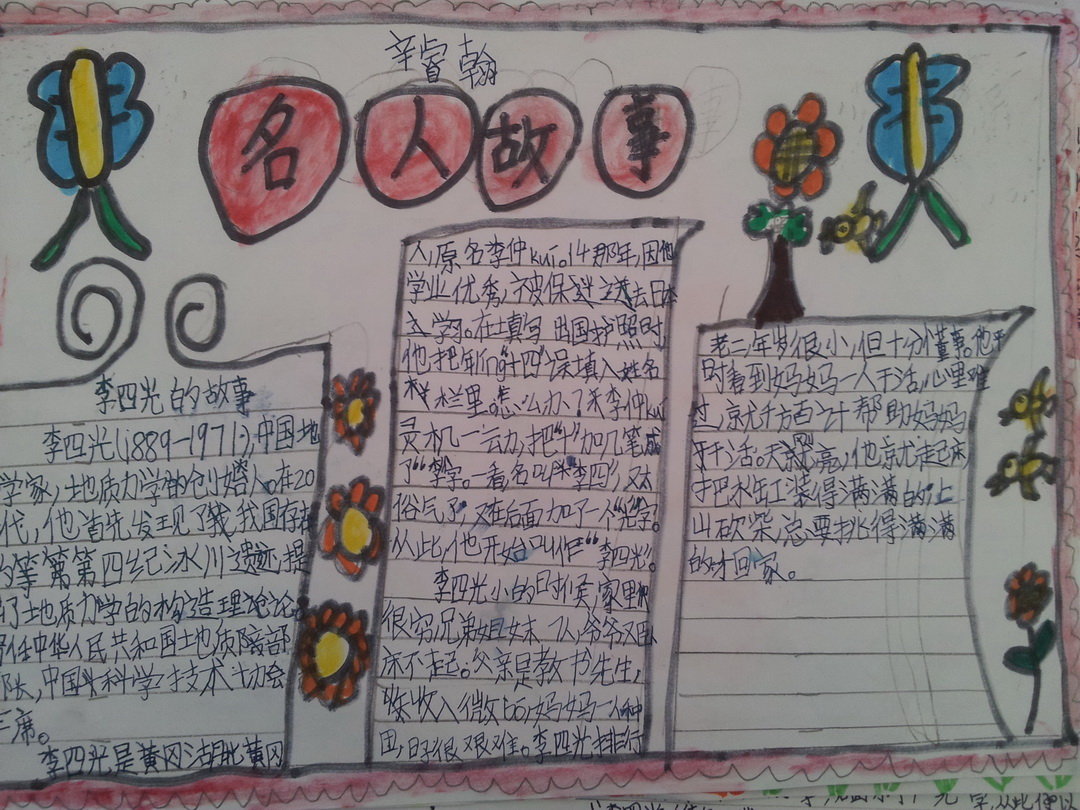 辛睿翰
名人故事
李四光的故事
李四光(1889-1971),中国地
学家,地质力学的创始人。在20
代,他首先发现了我国存在
第四纪冰川遗迹,提
了地质力学的构造理论
任中华人民共和国地质部
部长,中国科学技术协会
主席。
李四光是黄冈湖北黄冈
人,原名李仲kui。14那年,因他
学业优秀,被保送去日本
入学。在填写出国护照时,
他把年龄“十四”误填入姓名
栏里。怎么办?李仲kui
灵机一动,把“十”加几笔成
了“李”字。一看,名叫“李四”,又太
俗气了,在后面加了一个“光”字。
从此,他开始叫作“李四光”。
李四光小的时候家里
很穷,兄弟姐妹 人,爷爷又卧
床不起。父亲是教书先生,
收入微妙,妈妈一人种
田,日子很艰难。李四光排行
老二,年岁很小,但十分懂事。他平
时看到妈妈一人干活,心里难
过,就千方百计帮助妈妈
干活。天亮,他就起床
把水缸装得满满的,上
山砍柴,总要挑得满满
的才回家。